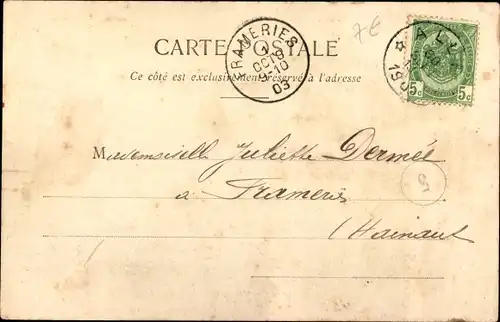 7€
CARTE POSTALE
Ce côté est exclusivement réservé à l'adresse
FRAMERIES
OCT
9-10
03
5c 5c
Mademoiselle Juliette Dermée
à Frameries
(Hainaut
5